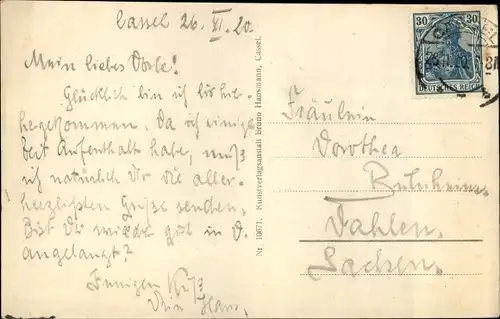 Cassel 26. XI. 20.
Mein liebes Dorle!
Glücklich bin ich bis hie-
hergekommen. Da ich einige
Zeit Aufenthalt habe, muß
ich natürlich Dir die aller-
herzlichsten Grüße senden.
Bist Du wieder gut in D.
angelangt?
Innigen Kuß
Dein Hans.
Nr. 10671. Kunstverlagsanstalt Bruno Hansmann, Cassel.
30 30
DEUTSCHES REICH
Fräulein
Dorothea
Dahlen.
Sachsen.